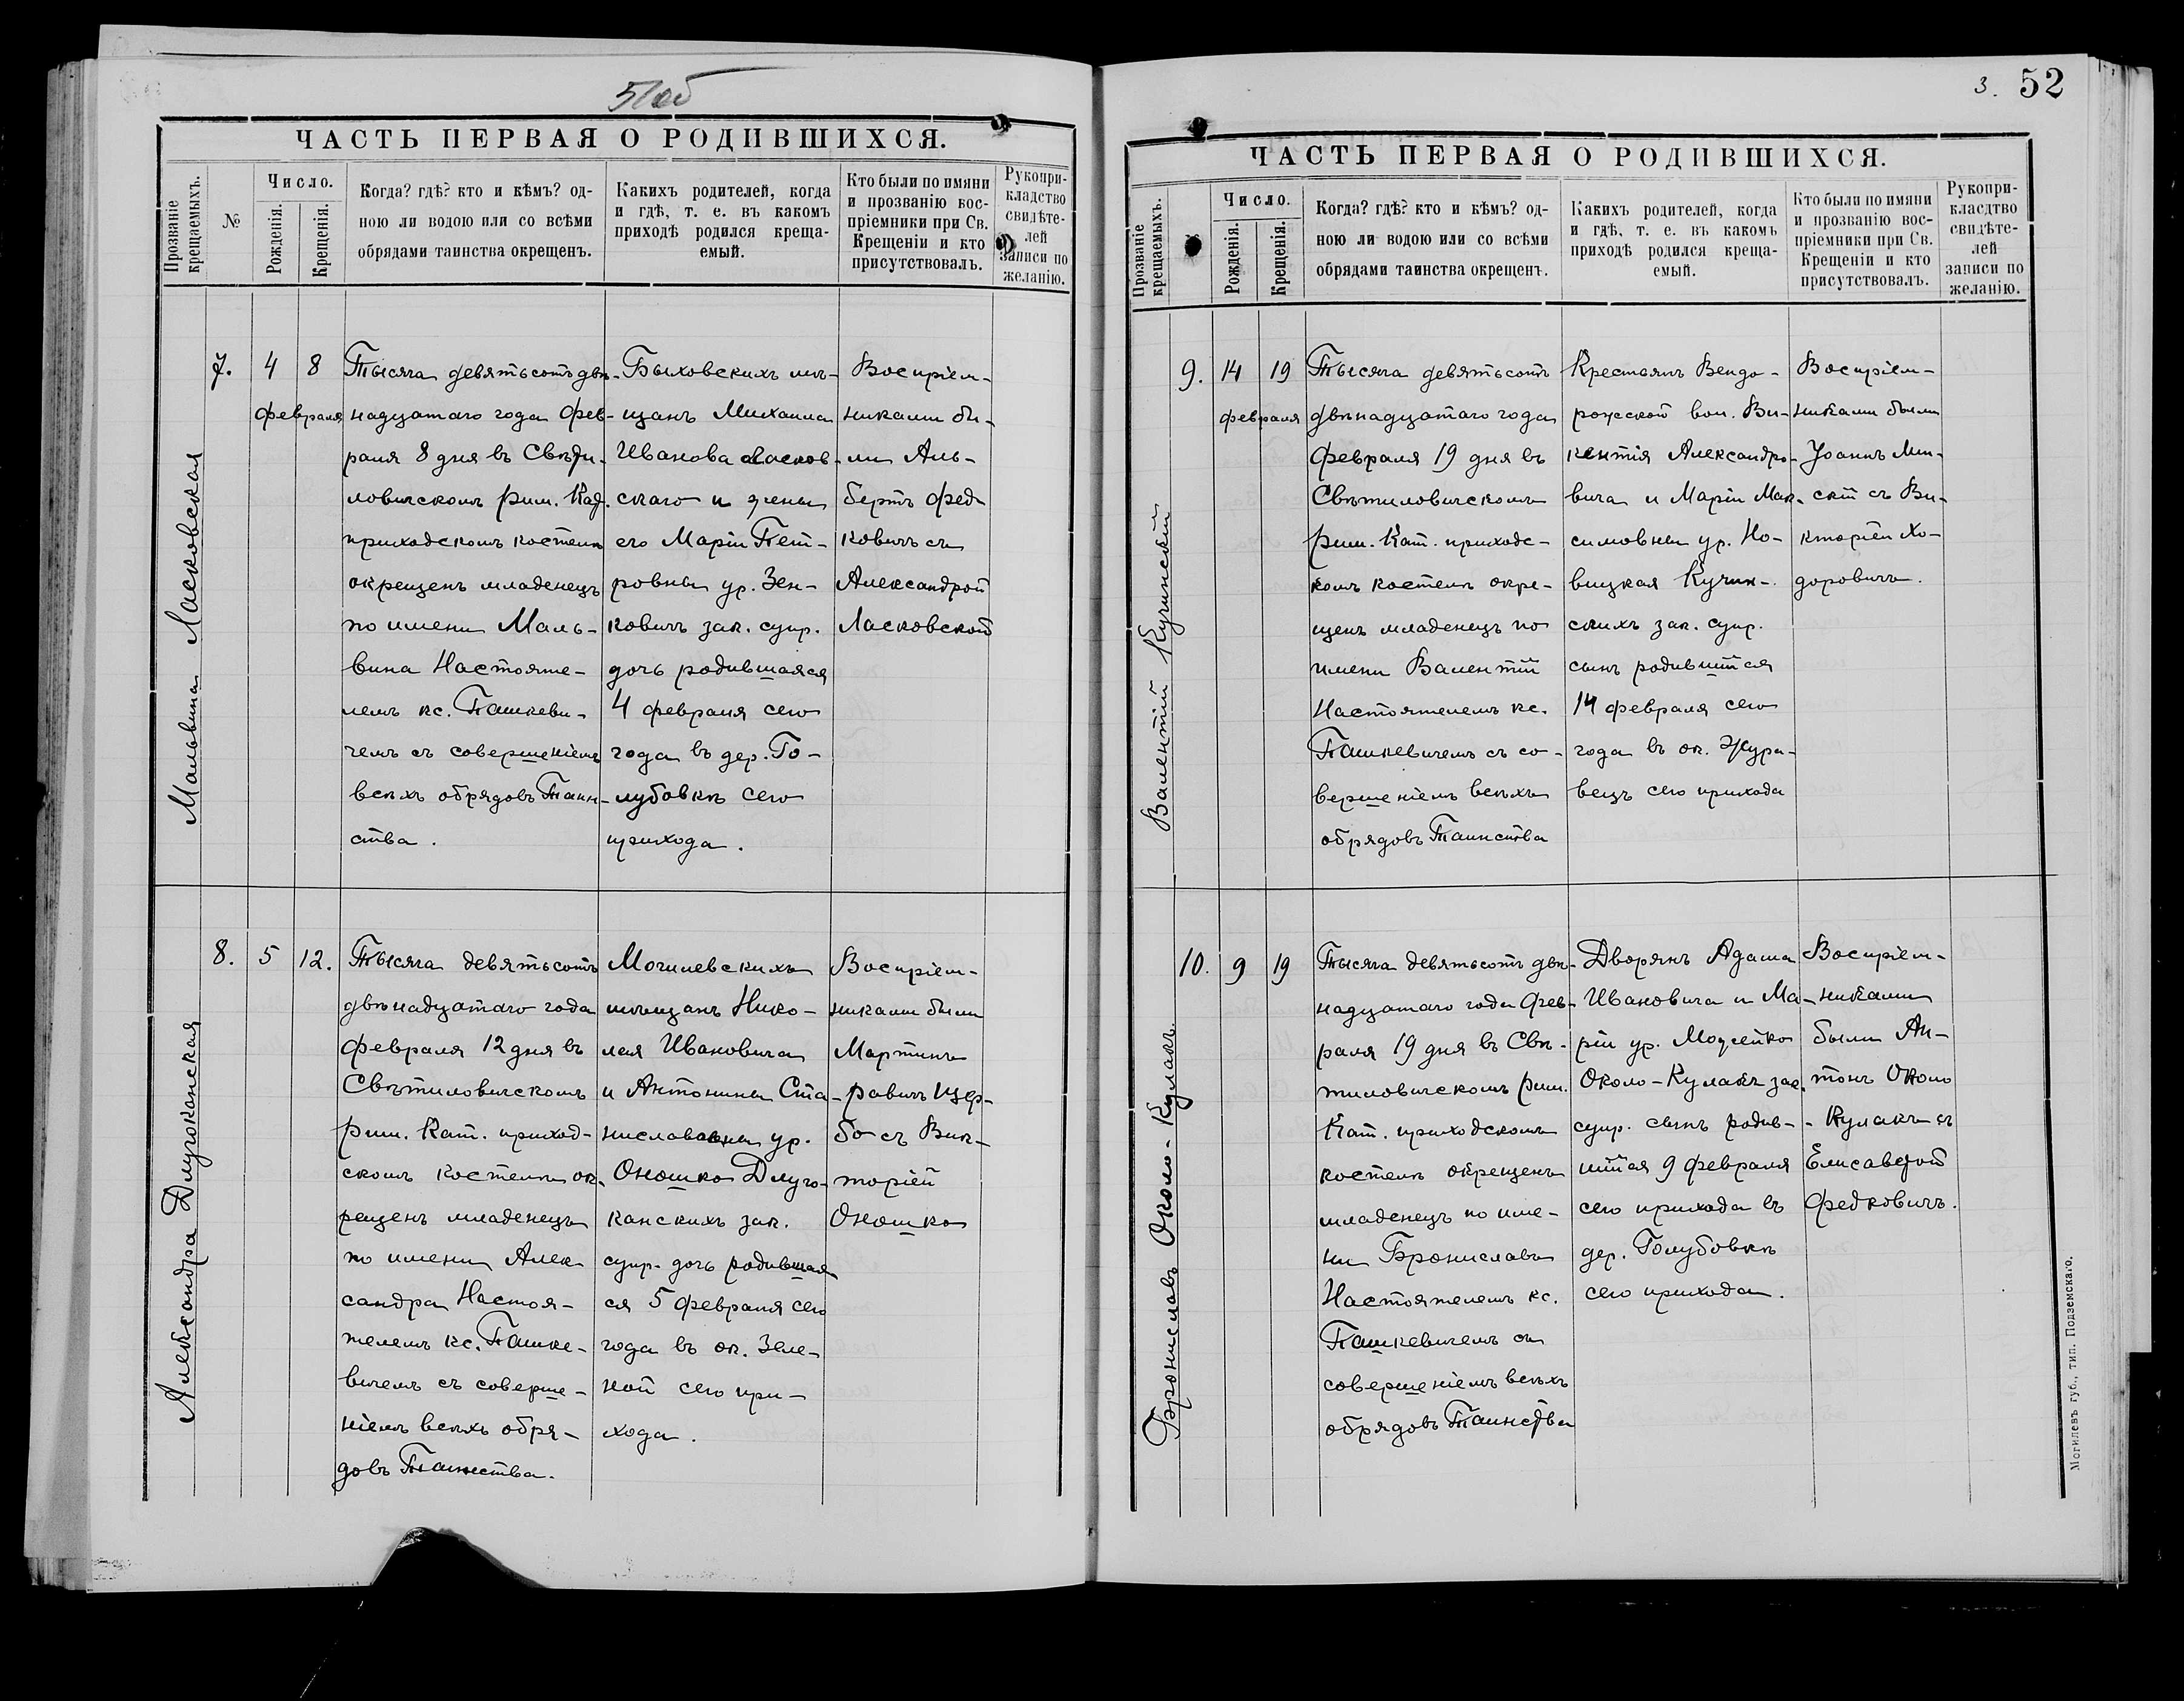 51об
ЧАСТЬ ПЕРВАЯ О РОДИВШИХСЯ.
Прозваніе крещаемыхъ.
№
Число.
Рожденія.
Крещенія.
Когда? гдѣ? кто и кѣмъ? од-
ною ли водою или со всѣми
обрядами таинства окрещенъ.
Какихъ родителей, когда
и гдѣ, т. е. въ какомъ
приходѣ родился креща-
емый.
Кто были по имяни
и прозванію вос-
пріемники при Св.
Крещеніи и кто
присутствовалъ.
Рукопри-
кладство
свидѣте-
лей
записи по
желанію.
Мальвина Ласковская
7.
4
8
февраля
Тысяча девятьсотъ двѣ-
надцатаго года Фев-
раля 8 дня въ Свѣти-
ловичскомъ Рим. Каѳ.
приходскомъ костелѣ
окрещенъ младенецъ
по имени Маль-
вина Настояте-
лемъ кс. Пашкеви-
чемъ съ совершеніемъ
всѣхъ обрядовъ Таин-
ства.
Быховскихъ мѣ-
щанъ Михаила
Иванова Ласков-
скаго и жены
его Маріи Пет-
ровны ур. Зен-
ковичъ зак. супр.
дочь родившаяся
4 февраля сего
года въ дер. Го-
лубовкѣ сего
прихода.
Воспріем-
никами бы-
ли Аль-
бертъ Фед-
ковичъ съ
Александрой
Ласковской
Александра Длугоканская
8.
5
12.
Тысяча девятьсотъ
двѣнадцатаго года
февраля 12 дня въ
Свѣтиловичскомъ
Рим. Кат. приход-
скомъ костелѣ ок-
рещенъ младенецъ
по имени Алек
сандра Настоя-
телемъ кс. Пашке-
вичемъ съ соверше-
ніемъ всѣхъ обря-
довъ Таинства.
Могилевскихъ
мѣщанъ Нико-
лая Ивановича
и Антонины Ста-
ниславовны ур.
Оношко Длуго-
канскихъ зак.
супр. дочь родившая
ся 5 февраля сего
года въ ок. Зеле-
ной сего при-
хода.
Воспріем-
никами были
Мартинъ
равичъ Щер-
бо съ Вик-
торіей
Оношко
3. 52
ЧАСТЬ ПЕРВАЯ О РОДИВШИХСЯ.
Прозваніе крещаемыхъ.
Число.
Рожденія.
Крещенія.
Когда? гдѣ? кто и кѣмъ? од-
ною ли водою или со всѣми
обрядами таинства окрещенъ.
Какихъ родителей, когда
и гдѣ, т. е. въ какомъ
приходѣ родился креща-
емый.
Кто были по имяни
и прозванію вос-
пріемники при Св.
Крещеніи и кто
присутствовалъ.
Рукопри-
класдтво
свидѣте-
лей
записи по
желанію.
Валентій Кучинскій
9.
14
19
февраля
Тысяча девятьсотъ
двѣнадцатаго года
Февраля 19 дня въ
Свѣтиловичскомъ
Рим. Кат. приходс-
комъ костелѣ окре-
щенъ младенецъ по
имени Валентій
Настоятелемъ кс.
Пашкевичемъ съ со-
вершеніемъ всѣхъ
обрядовъ Таинства
Крестьянъ Вендо-
рожской вол. Ви-
кентія Александро-
вича и Маріи Мак-
симовны ур. Но-
вицкая Кучин-
скихъ зак. супр.
сынъ родившійся
14 февраля сего
года въ ок. Жура-
вецъ сего прихода
Воспріем-
никами были
Іоаннъ Мин-
скій съ Ви-
кторіей Хо-
доровичъ.
Брониславъ Около-Кулакъ.
10.
9
19
Тысяча девятьсотъ двѣ-
надцатаго года Фев-
раля 19 дня въ Свѣ-
тиловичскомъ рим.
Кат. приходскомъ
костелѣ окрещенъ
младенецъ по име-
ни Брониславъ
Настоятелемъ кс.
Пашкевичемъ съ
совершеніемъ всѣхъ
обрядовъ Таинства
Дворянъ Адама
Ивановича и Ма-
ріи ур. Можейко
Около-Кулакъ зак.
супр. сынъ родив-
шійся 9 февраля
сего прихода въ
дер. Голубовкѣ
сего прихода.
Воспріем-
никами
были Ан-
тонъ Около
-Кулакъ съ
Елисаветой
Федковичъ.
Могилевъ губ., тип. Подземскаго.